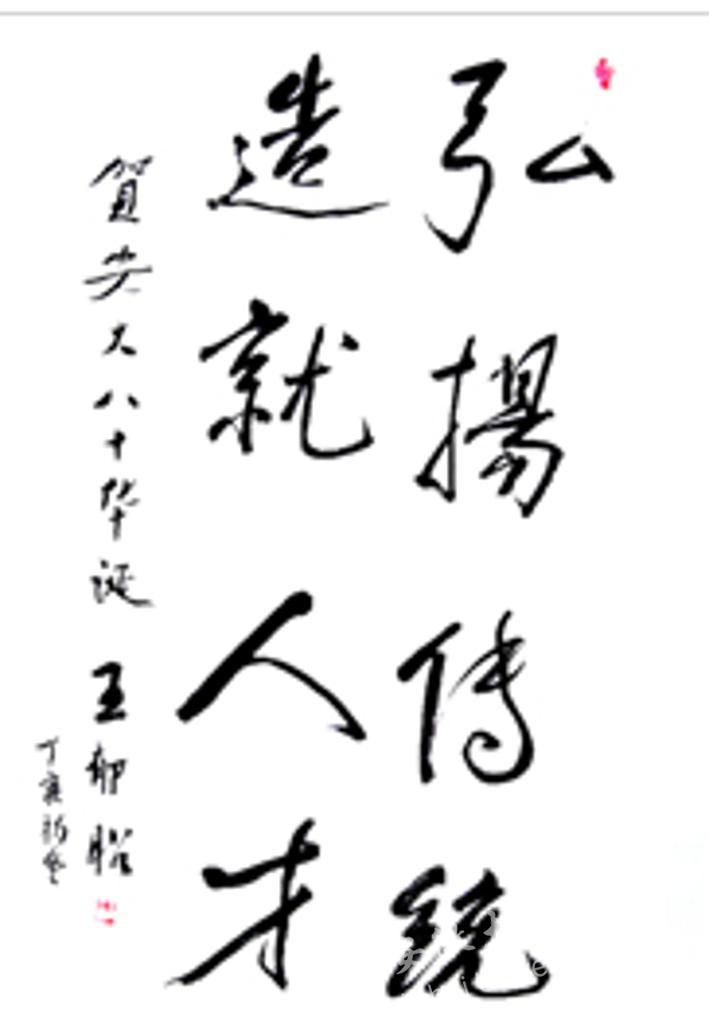 弘揚傳統
造就人才
賀安大八十华诞 王郁昭
丁亥初冬